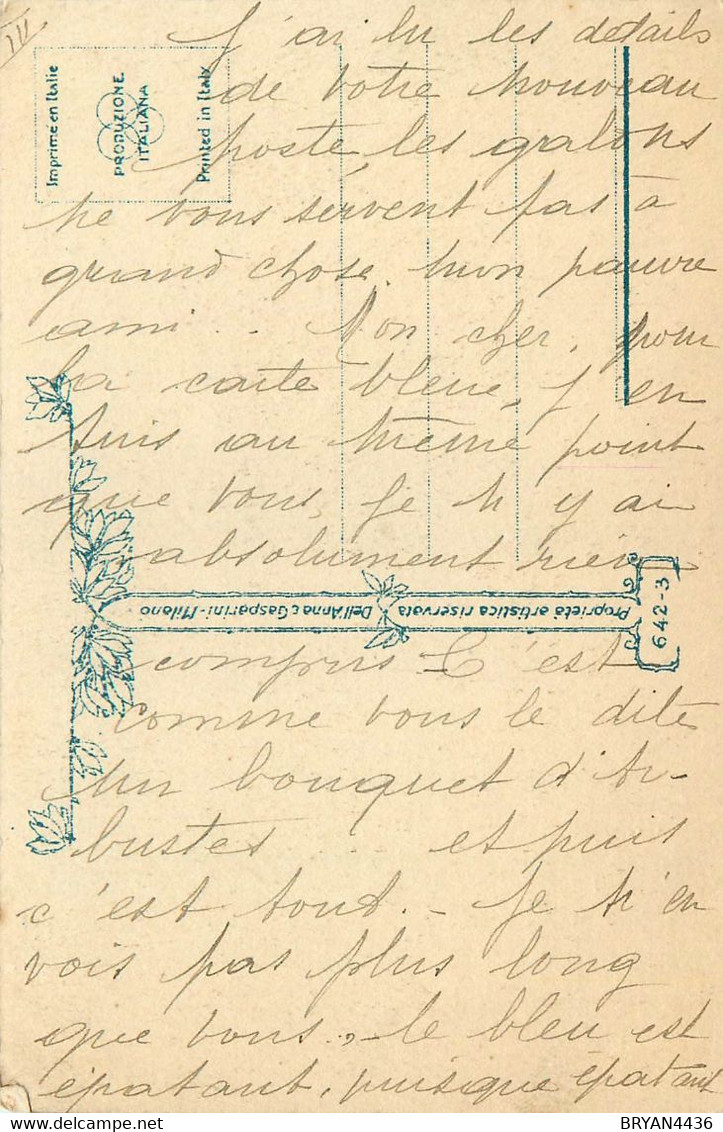 III
J'ai lu les détails
de votre nouveau
poste, les galons
ne vous servent pas à
grand chose, mon pauvre
ami.. Mon cher, pour
la carte bleue, j'en
suis au même point
que vous, je n'y ai
absolument rien
compris C'est
comme vous le dites
un bouquet d'ar-
bustes .. et puis
c'est tout. - Je n'en
vois pas plus long
que vous, le bleu est
épatant, puisque épatant
Imprimé en Italie
PRODUZIONE
ITALIANA
Printed in Italy
Proprietà artistica riservata
Dell'Anna & Gasparini - Milano
642-3
BRYAN4436